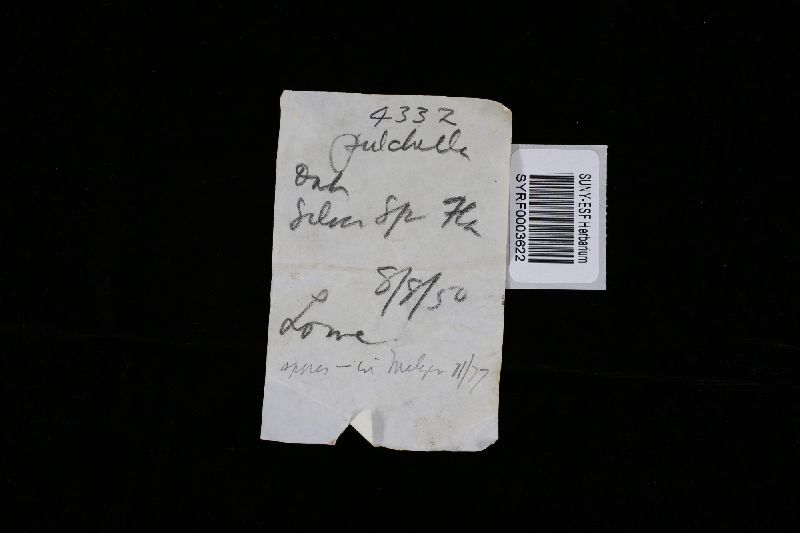 4332
pulchella
Oak
Silver Sp Fla
8/8/50
Lowe
spores - in Melzer 11/77
SUNY-ESF Herbarium
SYRF0003622